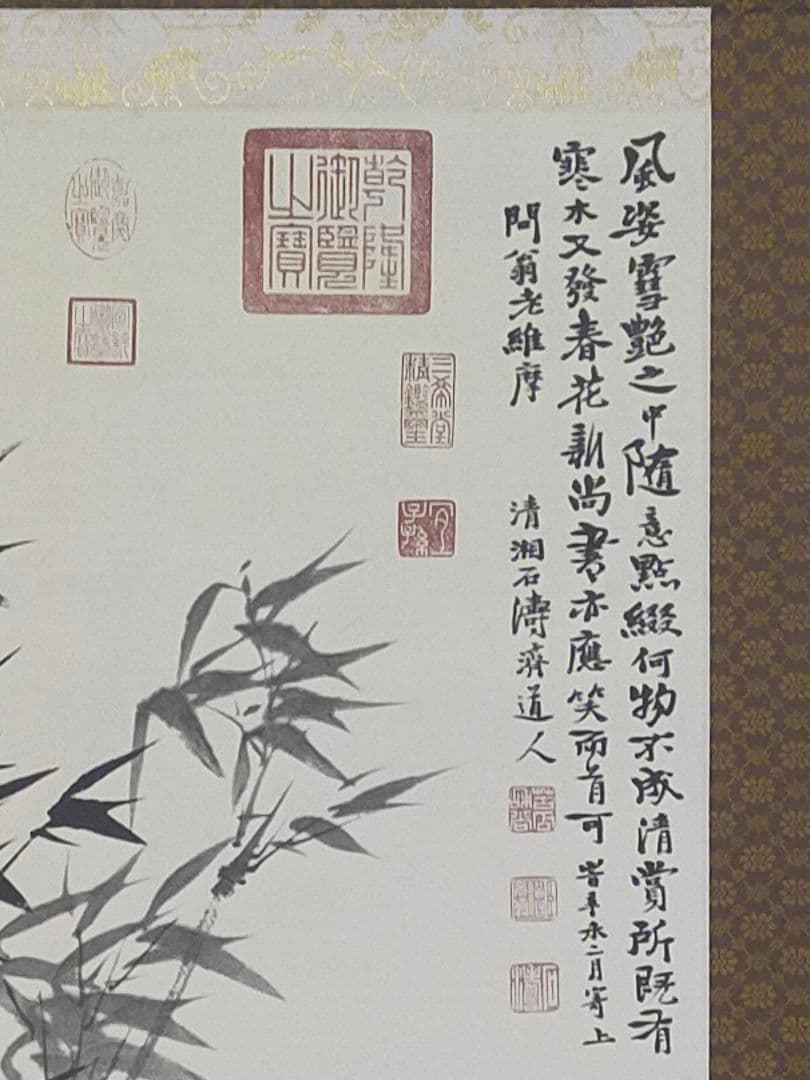 風姿雪艷之中隨意點綴何物不成清賞所既有
寒木又發春花新尚書亦應笑而首可 皆辛永二月寄上
問翁老維摩
清湘石濤濟道人
乾隆御覽之寶
三希堂精鑑璽
宜子孫